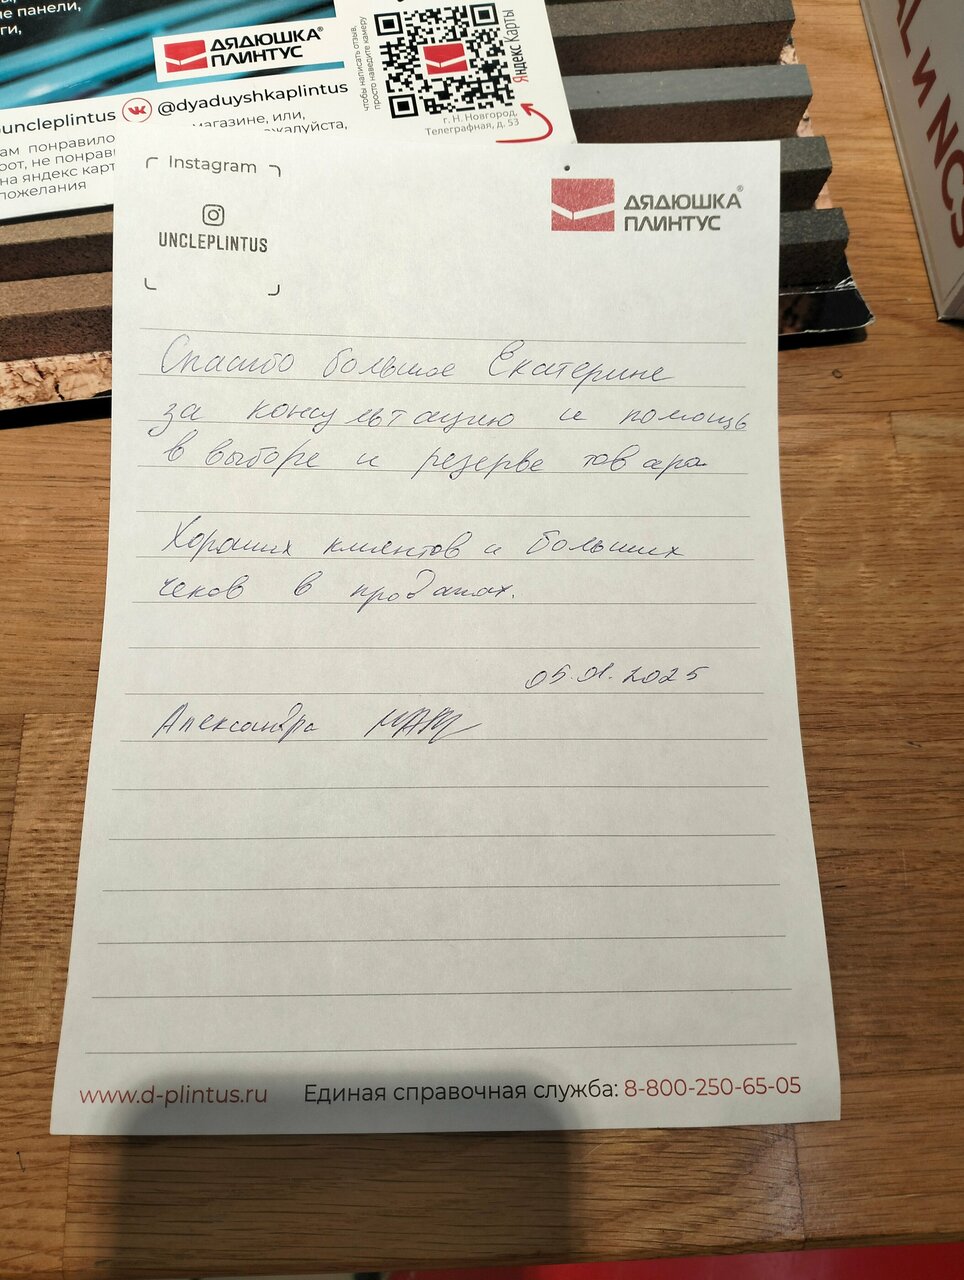 не панели,
ги,
ДЯДЮШКА®
ПЛИНТУС
uncleplintus
@dyaduyshkaplintus
чтобы написать отзыв,
просто наведите камеру
Яндекс Карты
г. Н. Новгород,
Телеграфная, д. 53
ам понравило
магазине, или,
рот, не понрав
жалуйста,
на яндекс карт
пожелания
AL и NCS
Instagram
UNCLEPLINTUS
ДЯДЮШКА®
ПЛИНТУС
Спасибо большое Екатерине
за консультацию и помощь
в выборе и резерве товара.
Хороших клиентов и больших
чеков в продажах.
05.01.2025
Александра
www.d-plintus.ru Единая справочная служба: 8-800-250-65-05